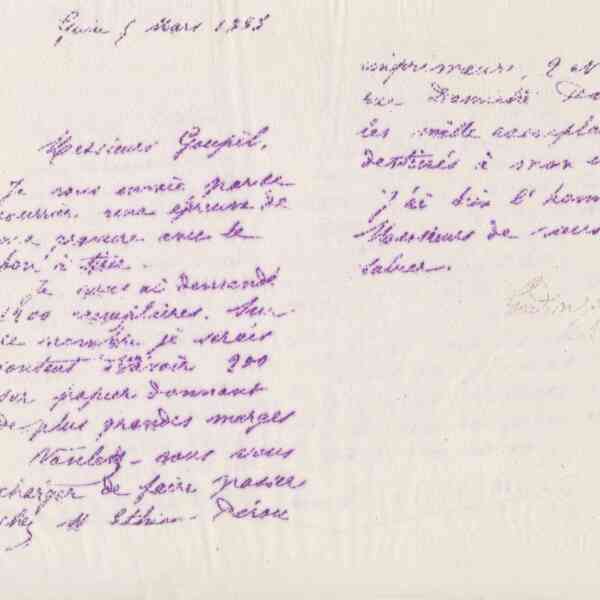 5 Mars
Messieurs Goupil,
Je vous envoie par ce
courrier une épreuve de
gravure avec le
bon à tirer.
Je vous ai demandé
exemplaires. Sur
ce nombre je serais
content d'avoir 200
sur papier donnant
de plus grandes marges
Voulez-vous vous
charger de faire passer
chez M
imprimeurs, 2
rue
les mille exemplai
destinés à mon
J'ai bien l'hon
Messieurs de vous
saluer.